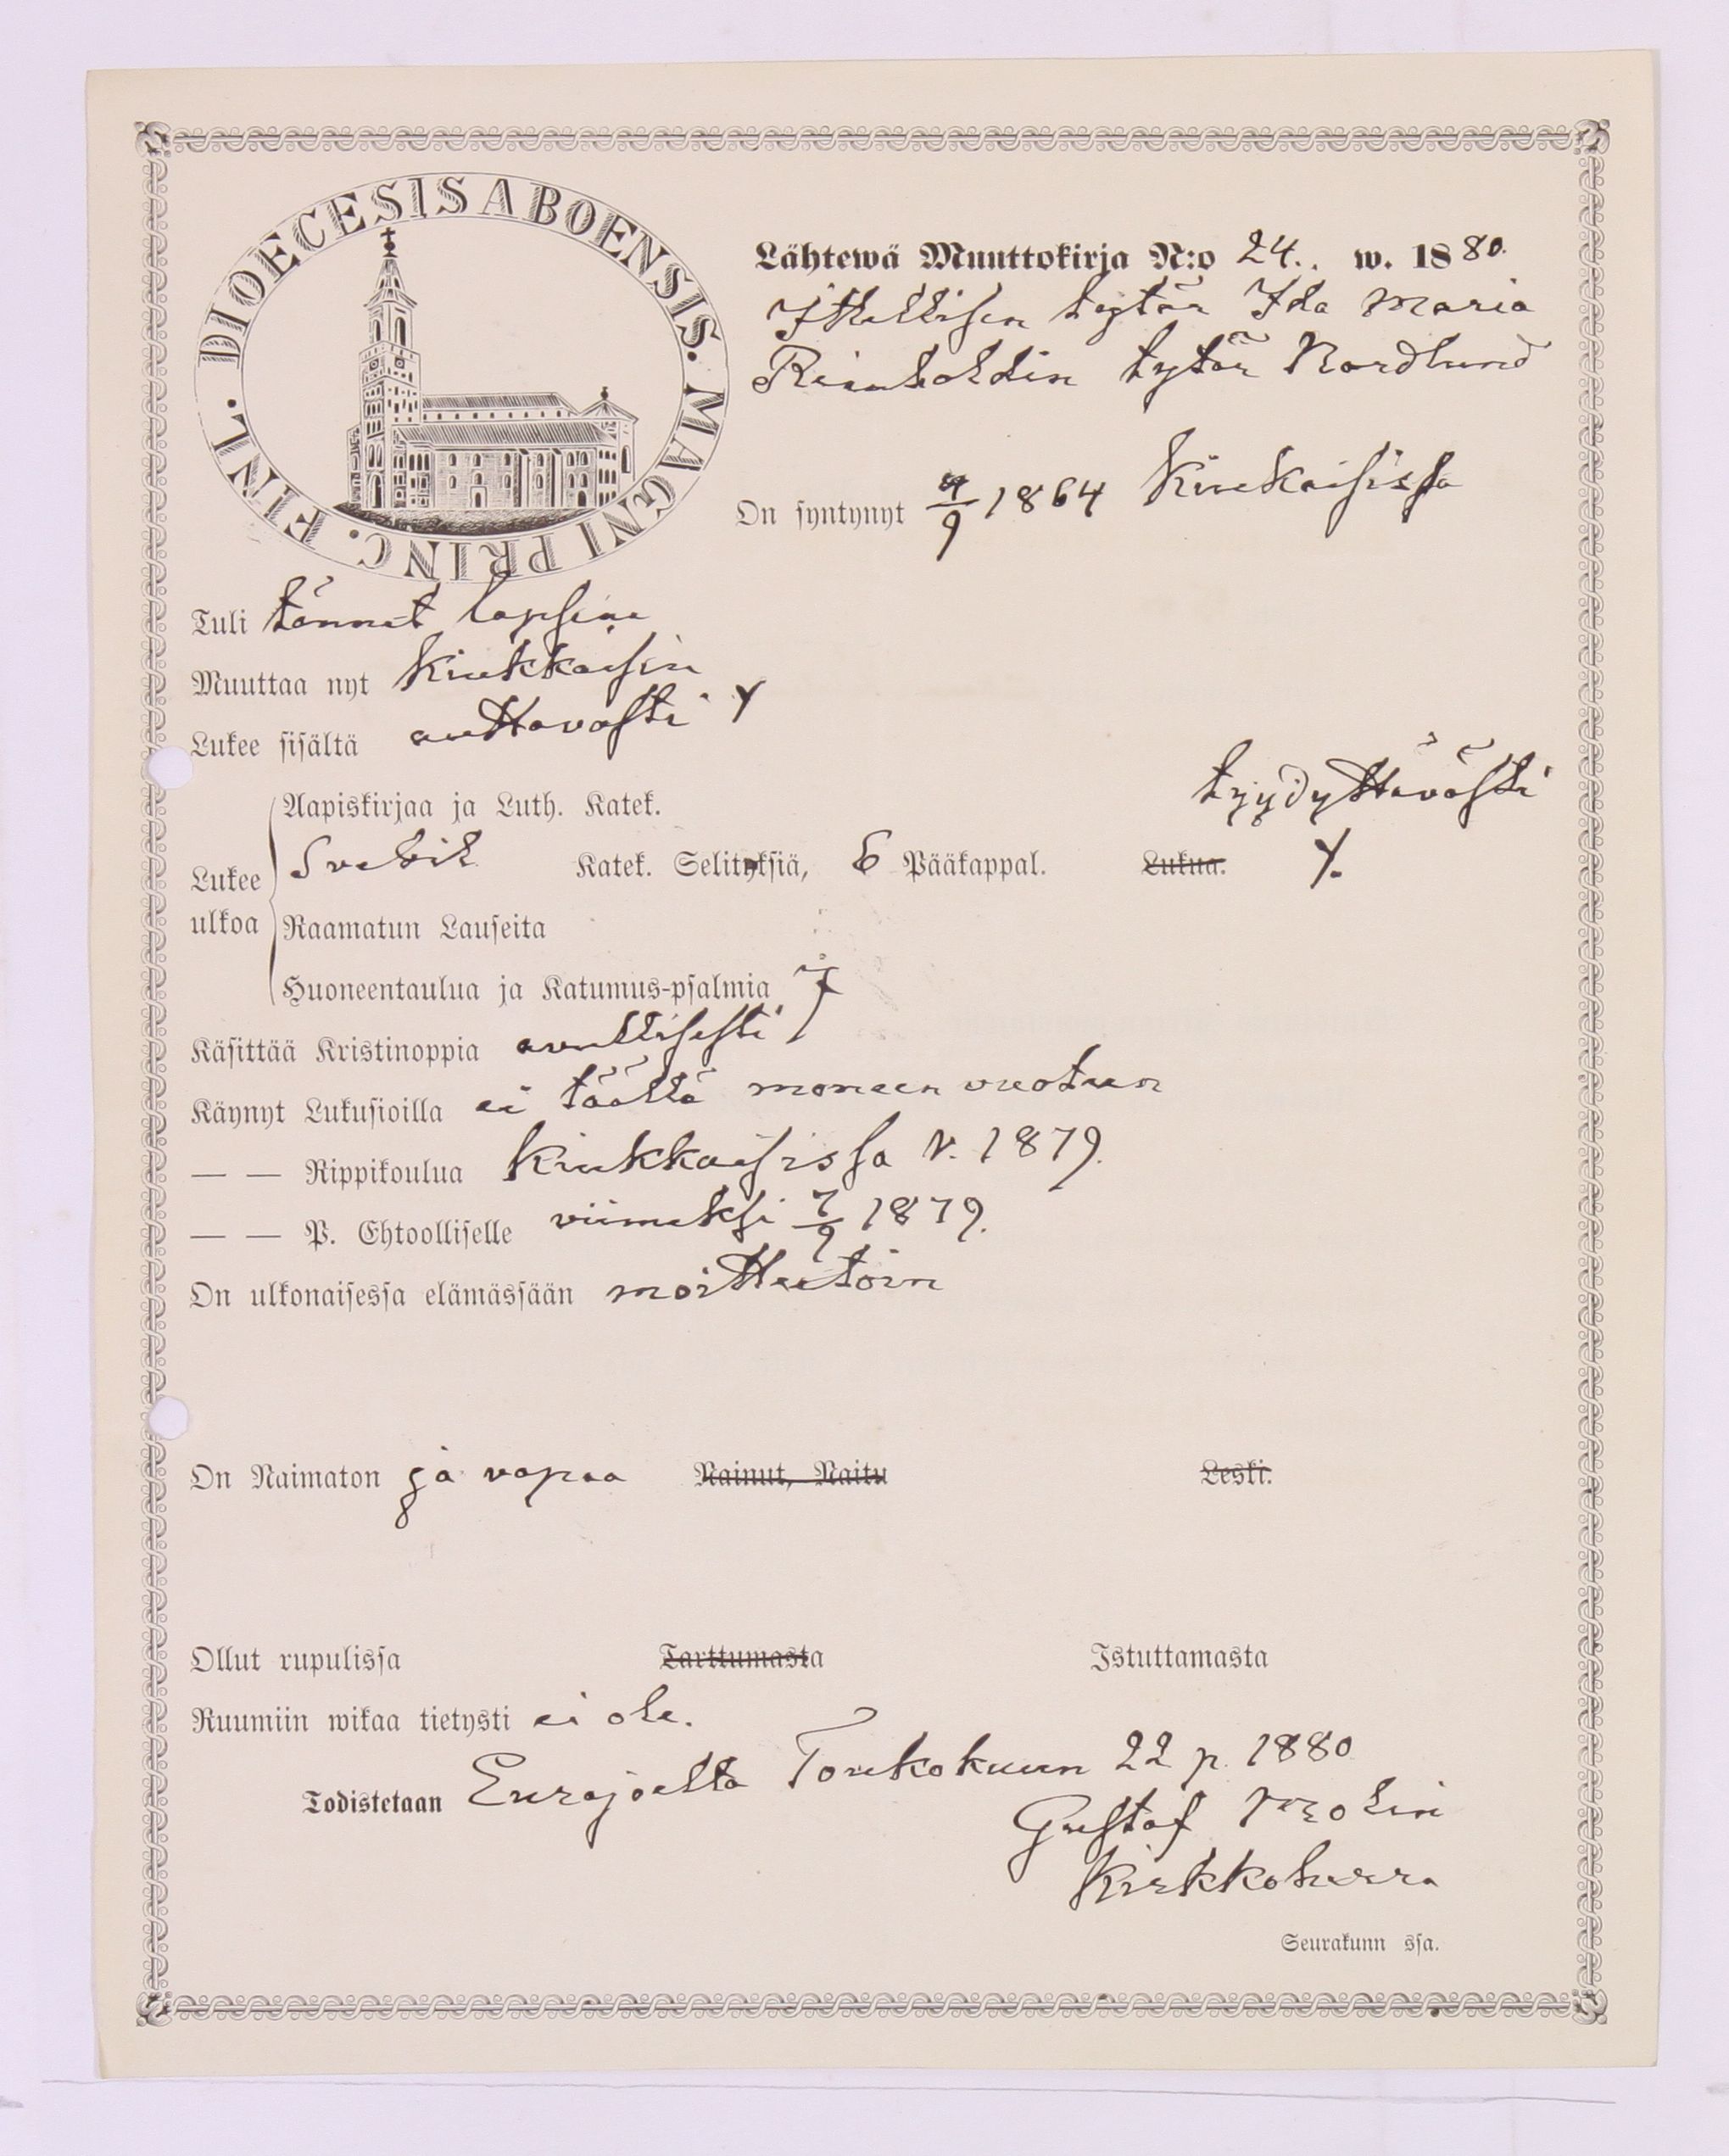 DIOECESIS ABOENSIS. MAGNI PRINC. FINL.
Lähtewä Muuttokirja N:o 24. w. 1880.
Itsellisen tytär Ida Maria
Reinholdin tytär Nordlund
On syntynyt 4/9 1864 Kiukaisissa
Tuli tännet lapsina
Muuttaa nyt Kiukkaisin
Lukee sisältä auttavasti
Aapiskirjaa ja Luth. Katek. tyydyttävästi
Lukee ulkoa
Svebil Katek. Selityksiä, 6 Pääkappal. Lukua.
Raamatun Lauseita
Huoneentaulua ja Katumus-psalmia 7
Käsittää Kristinoppia avullisesti
Käynyt Lukusioilla ei täällä moneen vuoteen
— — Rippikoulua Kiukkaisissa v. 1879.
— — P. Ehtoolliselle viimeksi 7/9 1879.
On ulkonaisessa elämässään moitteetoin
On Naimaton ja vapaa Nainut, Naitu Leski.
Ollut rupulissa Tarttumasta Istuttamasta
Ruumiin wikaa tietysti ei ole.
Todistetaan Eurajoella Toukokuun 22 p. 1880
Gustaf
Kirkkoherra
Seurakunn ssa.